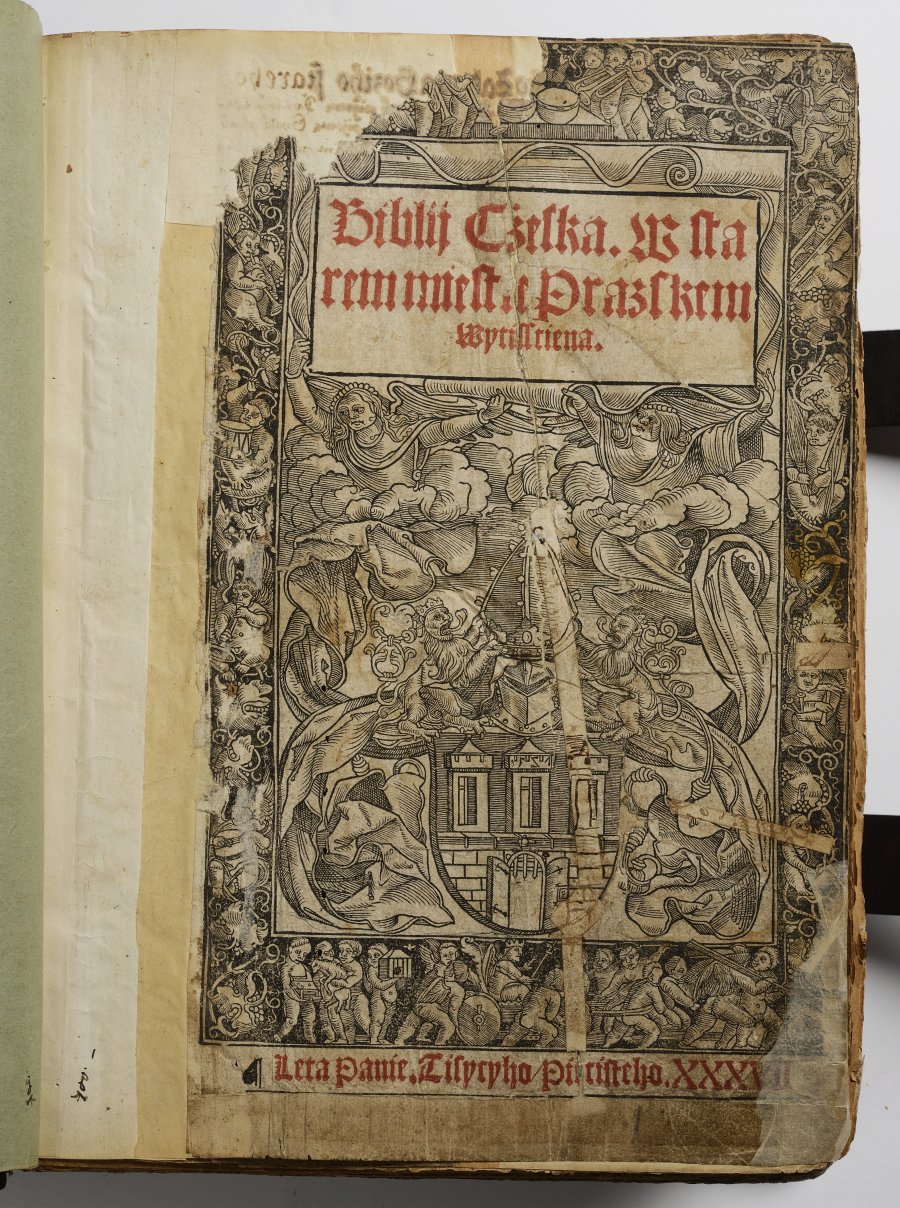 Biblij Czeska. W sta
rem miestie Prazskem
Wytisstiena.
Leta Panie. Tisycyho Pietisteho. XXXVII